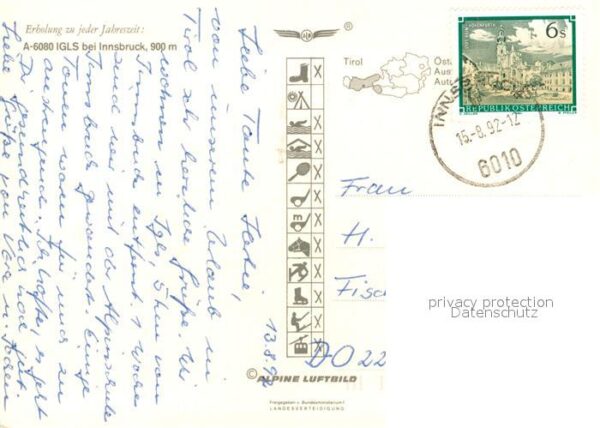 Erholung zu jeder Jahreszeit:
A-6080 IGLS bei Innsbruck, 900 m
Liebe Tante
von unserem Urlaub in
Tirol sehr herzliche Grüße. Wir
wohnen in Igls 5 km von
Innsbruck entfernt. 1 Woche
sind wir mit der Alpinschule
Innsbruck gewandert. Einige
Touren waren für uns zu
anstrengend. Ich hoffe, es geht
Dir gesundheitlich
Liebe Grüße von u. Jochen
13.8.92
Tirol
Öst
Aus
Auto
6s
REPUBLIK ÖSTERREICH
INNS
15.-8.92-12
6010
m
Frau
H.
Fisc
D-O 22
© ALPINE LUFTBILD
Freigegeben v. Bundesministerium f.
LANDESVERTEIDIGUNG
privacy protection
Datenschutz